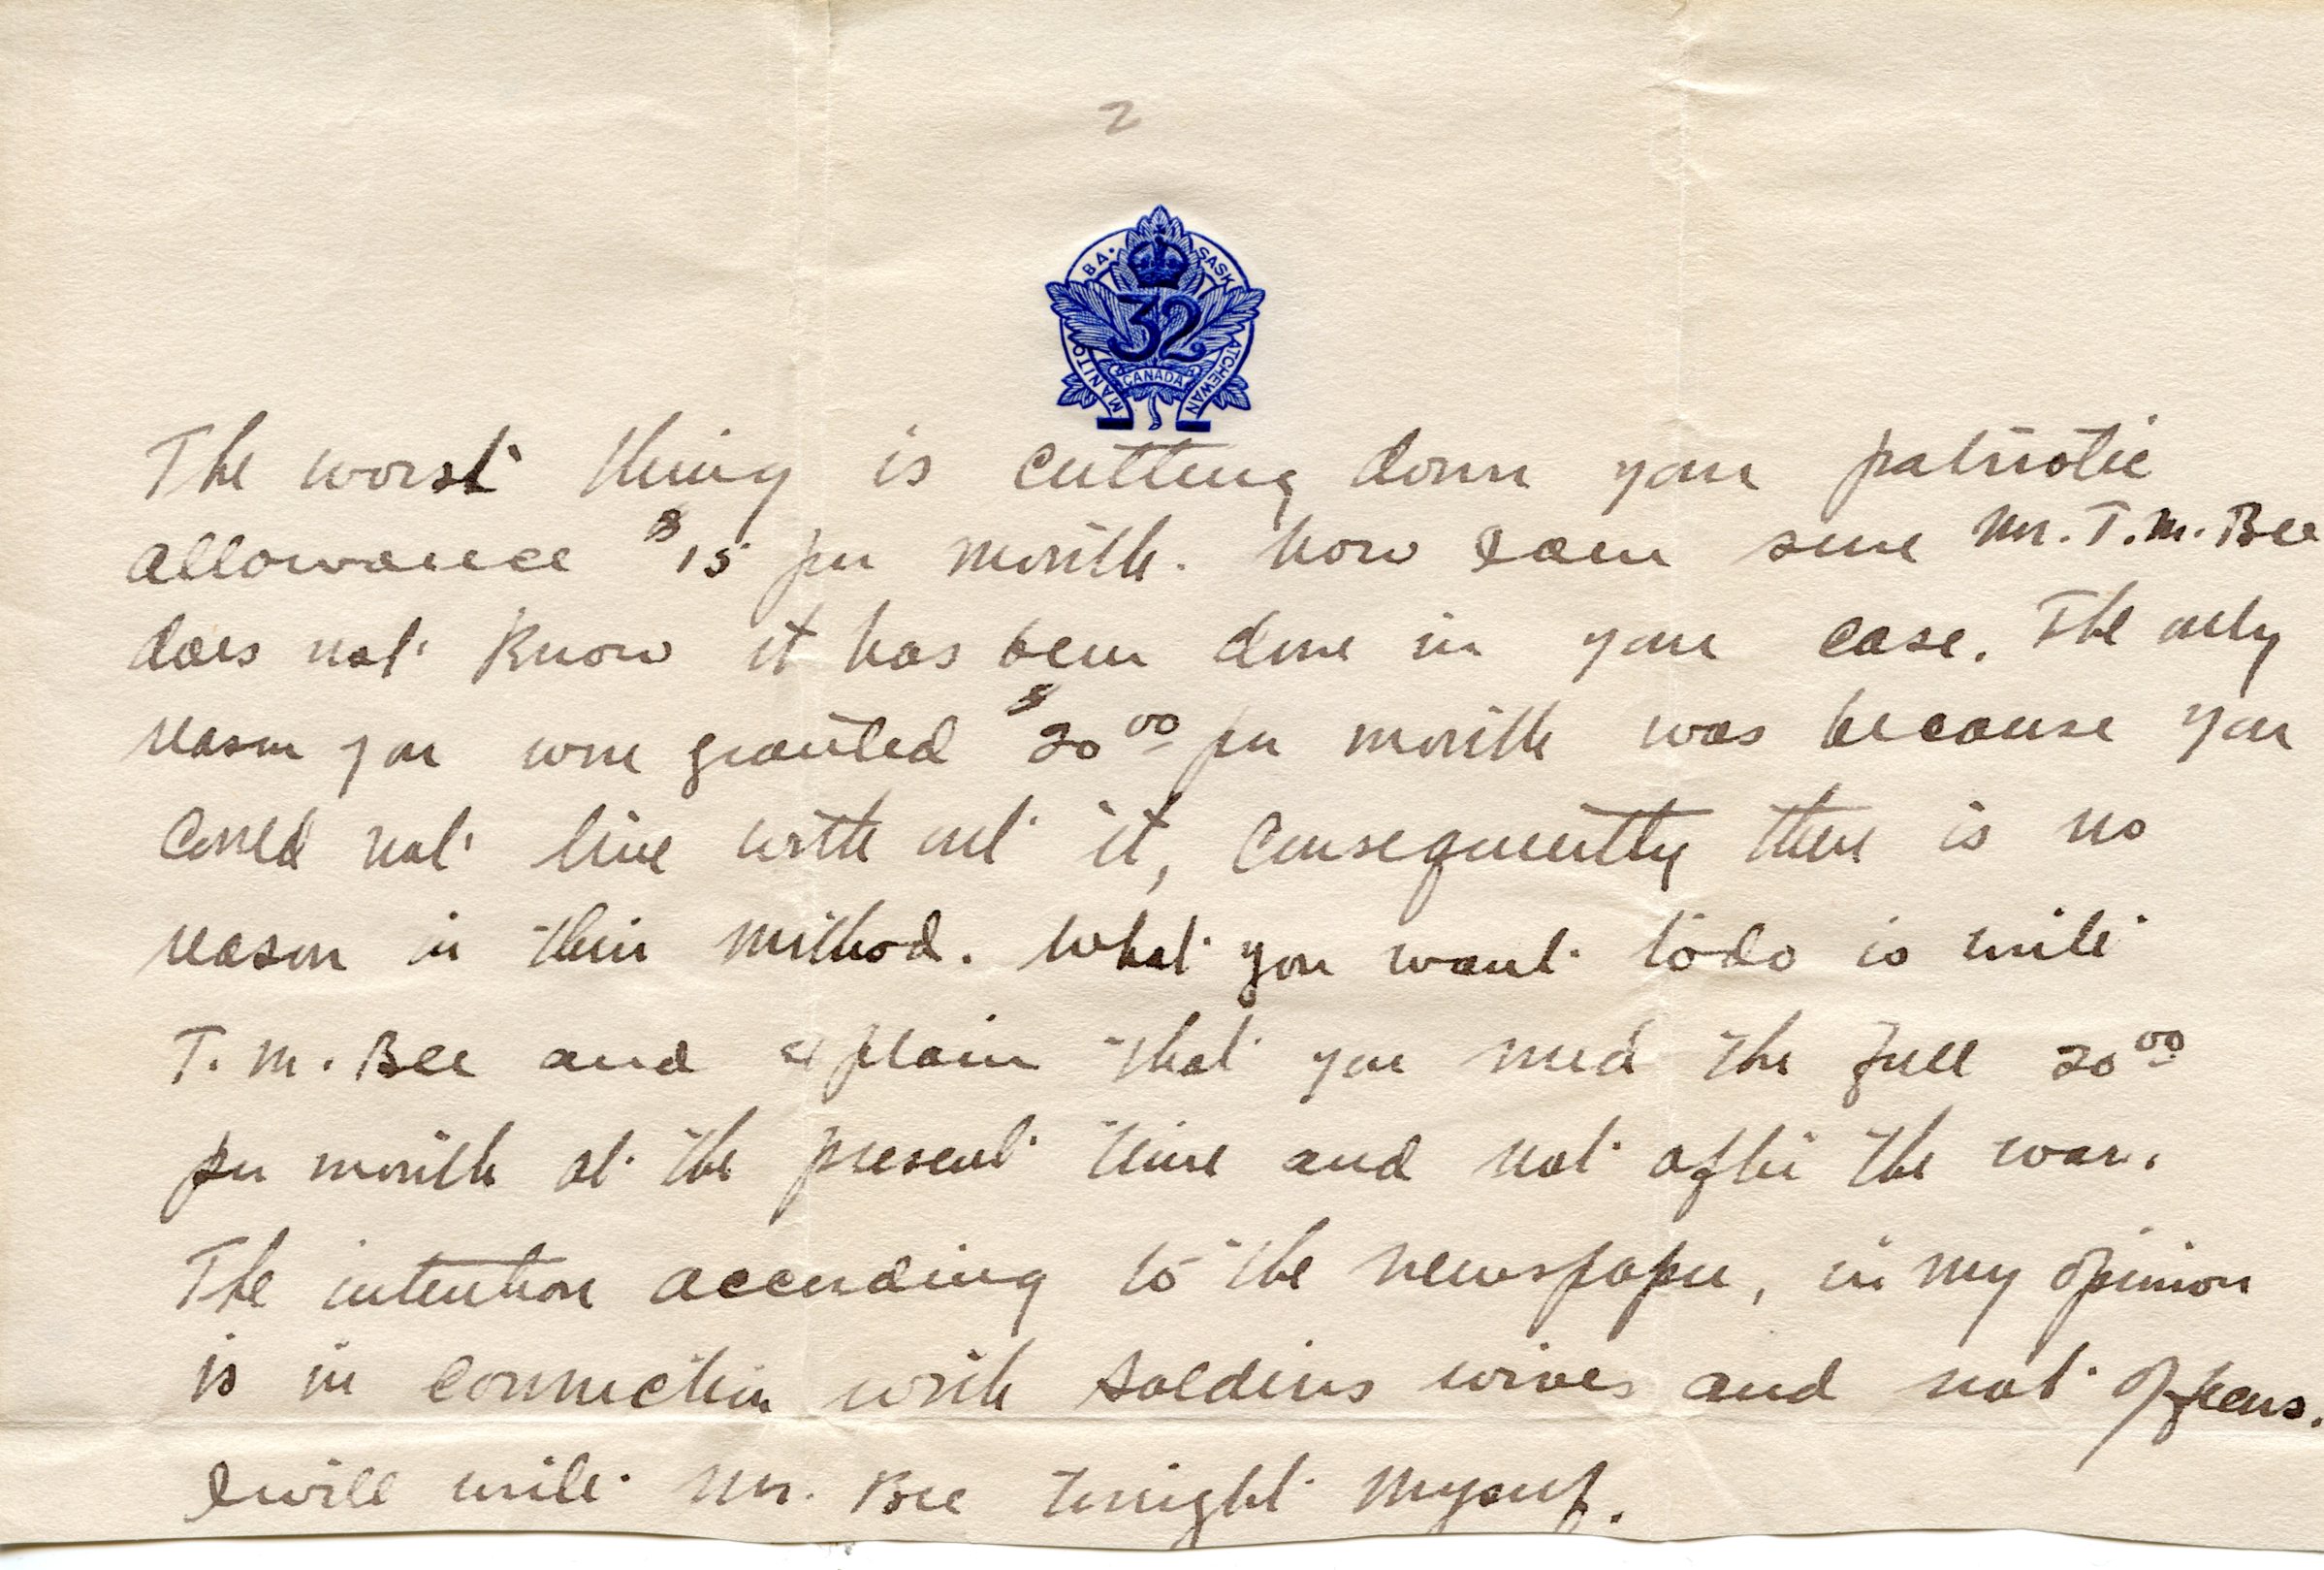 2
MANITOBA. SASKATCHEWAN
32
CANADA
The worst thing is cutting down your patriotic
allowance $15 per month. Now I am sure Mr. T. M. Bee
does not know it has been done in your case. The only
reason you were granted $20 00 per month was because you
could not live with out it, consequently there is no
reason in their method. What you want to do is write
T. M. Bee and explain that you need the full 20 00
per month at the present time and not after the war.
The intention according to the newspaper, in my opinion
is in connection with soldiers wives and not officers.
I will write Mr. Bee tonight myself.